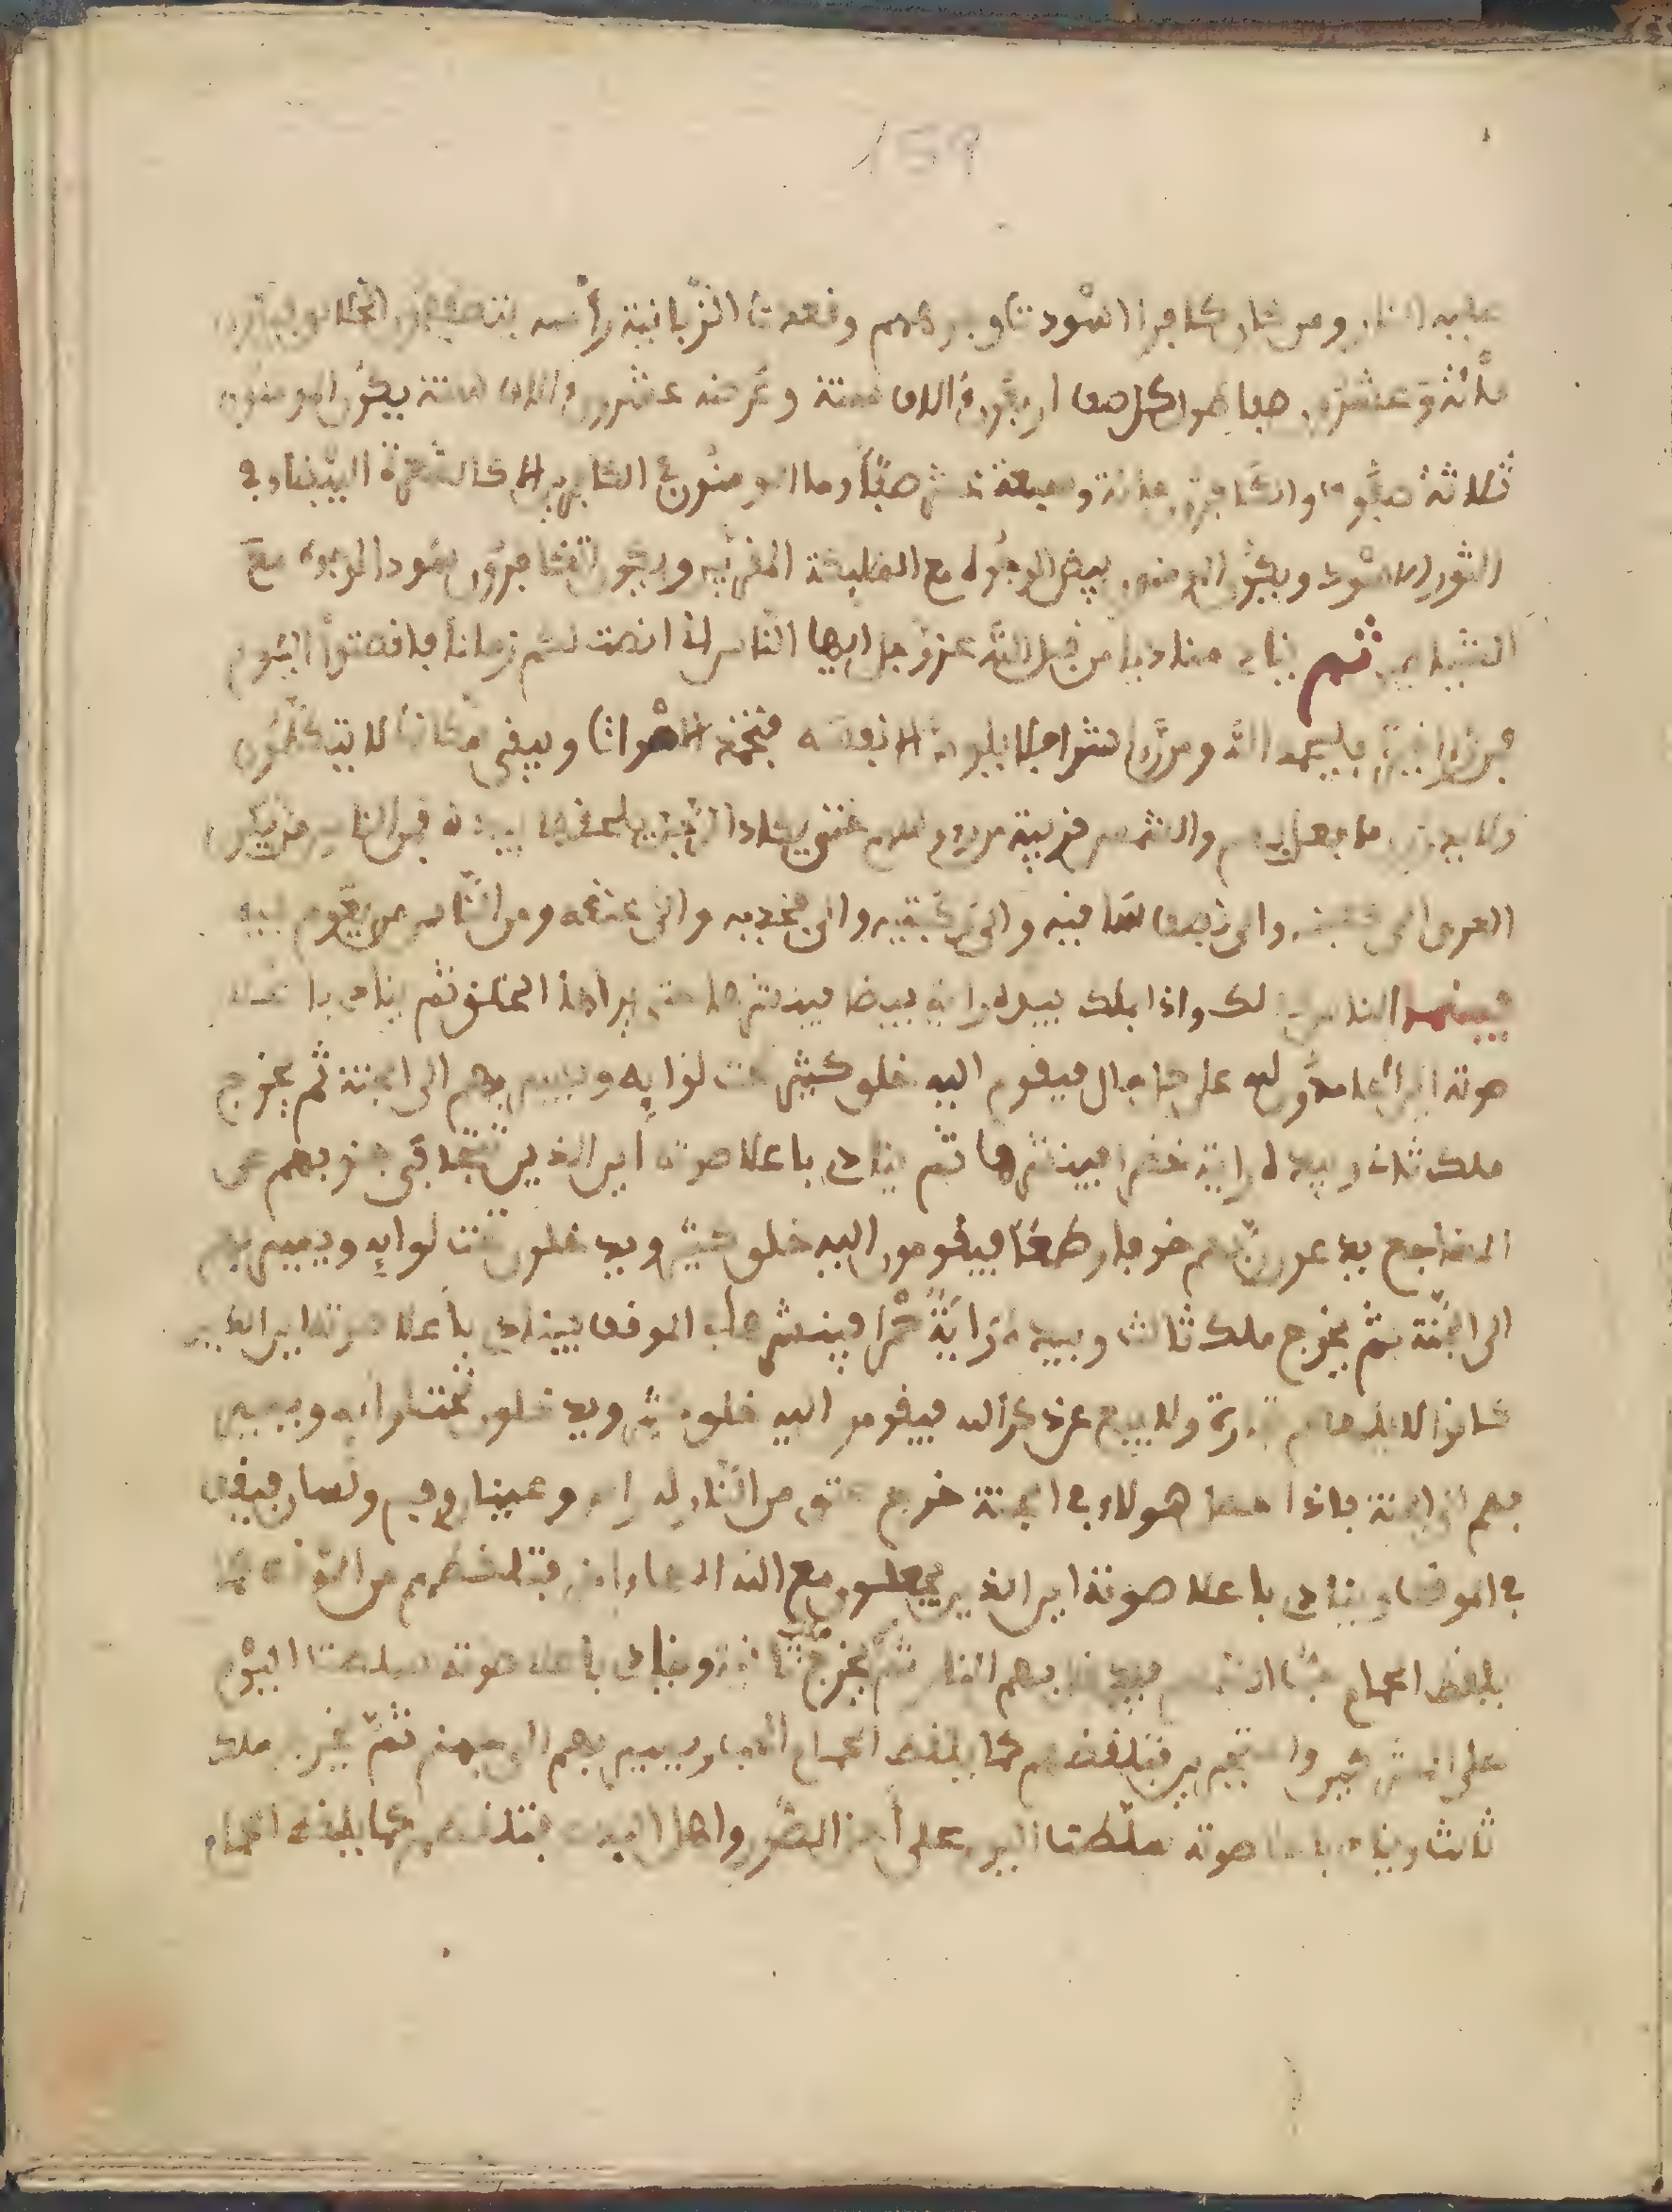 159
عليه النار ومن كان كافرا اسودت وجوههم وقعدت الزبانية رأسه
مائة وعشرون صفا طول كل صف اربعون الاف سنة وعرضه عشرون الاف سنة يكون المومنون
ثلاثة صفوف والكافرون مائة وسبعة عشر صفا وما المومنون في الكافرين الا كالشعرة البيضاء في
الثور الاسود ويكون المومنون بيض الوجوه مع الملايكة المقربين ويكون الكافرون سود الوجوه مع
الشياطين ثم ينادي مناديا من قبل الله عز وجل ايها الناس اني انصت لكم زمانا فانصتوا اليوم
خيرا فليحمد الله ومن وجد شرا فلا يلومن الا نفسه فتخشع الاصوات ويبقى مكانا لا يتكلمون
ولا يدرون ما يفعل بهم والشمس قريبة من رءوسهم حتى يكاد الرجل يلحقها بيده فمن الناس من يكون
العرق الى كعبيه والى نصف ساقيه والى ركبتيه والى فخذيه والى عنقه ومن الناس من يعوم فيه
فبينما الناس كذلك واذا بملك بيده راية بيضا فينشرها حتى يراها الخلق ثم ينادي باعلا
صوته اين الحامدون لله على كل حال فيقوم اليه خلق كثير تحت لوايه ويسير بهم الى الجنة ثم يخرج
ملك ثان وبيده راية خضرا فينشرها ثم ينادي باعلا صوته اين الذين تتجافى جنوبهم عن
المضاجع يدعون ربهم خوفا وطمعا فيقومون اليه خلق كثير ويدخلون تحت لوايه ويسير بهم
الى الجنة ثم يخرج ملك ثالث وبيده راية حمرا فينشرها في الموقف فينادي باعلا صوته اين الذين
كانوا لا تلهاهم تجارة ولا بيع عن ذكر الله فيقومون اليه خلق كثير ويدخلون تحت لوايه ويسير
بهم الى الجنة فاذا حصل هولاء في الجنة خرج عنق من النار له راس وعينان وفم ولسان فيقف
في الموقف وينادي باعلا صوته اين الذين يجعلون مع الله الاها اخر فتلقطهم من الموقف كما
يلقط الحمام حب السمسم فيدخل بهم النار ثم يخرج عنق ثانية وينادي باعلا صوته سلطت اليوم
على المتكبرين والمتجبرين فتلقطهم كما يلقط الحمام الحب ويسير بهم الى جهنم ثم يخرج ملك
ثالث وينادي باعلا صوته سلطت اليوم على اهل الصور واهل فتلقطهم كما يلقط الحمام